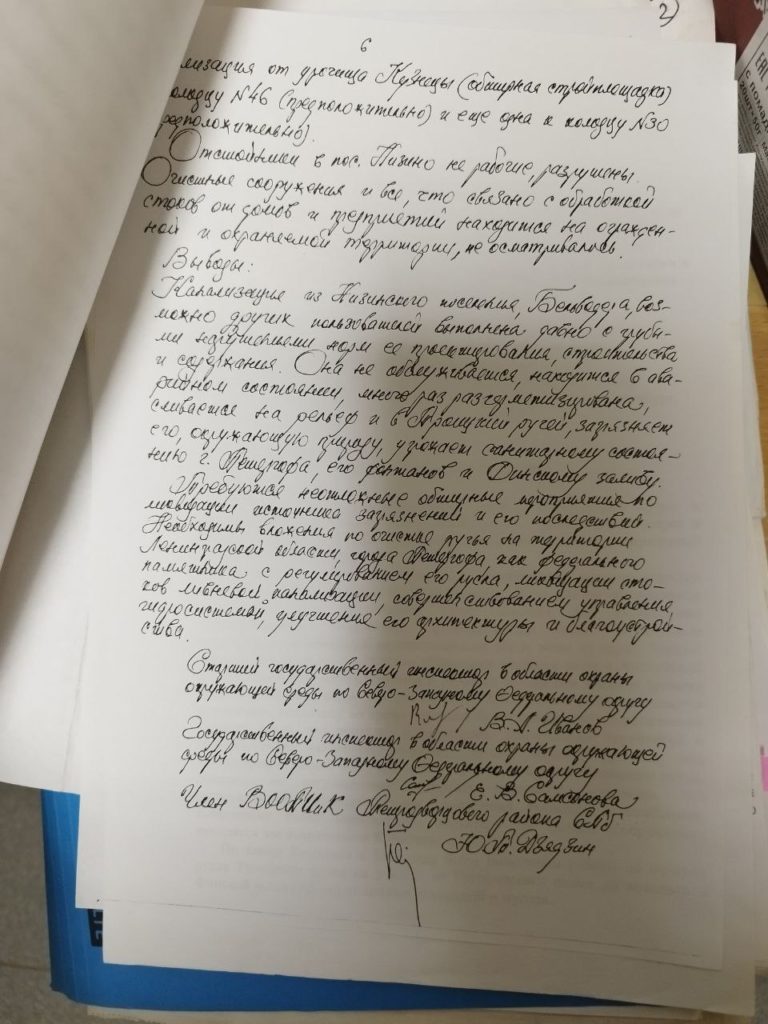 2)
6
лизация от урочища Кузнецы (обширная стройплощадка)
олодцу №46 (предположительно) и еще одна к колодцу №30
редположительно).
Отстойники в пос. Низино не рабочие, разрушены.
Очистные сооружения и все, что связано с обработкой
стоков от домов и предприятий находится на огражден-
ной и охраняемой территории, не осматривалось.
Выводы:
Канализация из Низинского поселения, Бельведера, воз-
можно других пользователей выполнена давно с грубы-
ми нарушениями норм ее проектирования, строительства
и содержания. Она не обслуживается, находится в ава-
рийном состоянии, много раз разгерметизирована,
сливается на рельеф и в Троицкий ручей, загрязняет
его, окружающую природу, угрожает санитарному состоя-
нию г. Петергофа, его фонтанов и Финскому заливу.
Требуются неотложные обширные мероприятия по
ликвидации источника загрязнений и его последствий.
Необходимы вложения по очистке ручья на территории
Ленинградской области, города Петергофа, как федерального
памятника с регулированием его русла, ликвидации сто-
ков ливневой канализации, совершенствованием управления,
гидросистемой, улучшения его архитектуры и благоустрой-
ства.
Старший государственный инспектор в области охраны
окружающей среды по Северо-Западному Федеральному округу
В. А. Иванов
Государственный инспектор в области охраны окружающей
среды по Северо-Западному Федеральному округу
Е. В. Самсонова
Член ВООПИиК Петродворцового района СПб
Ю. В. Дзядзин